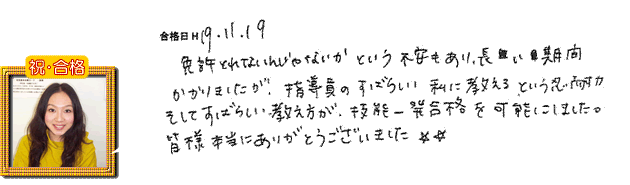 合格日 H19.11.19
祝・合格
免許とれないんじゃないかという不安もあり、長い期間
かかりましたが、指導員のすばらしい私に教えるという忍耐力
そしてすばらしい教え方が、技能一発合格を可能にしました。
皆様本当にありがとうございました☆☆